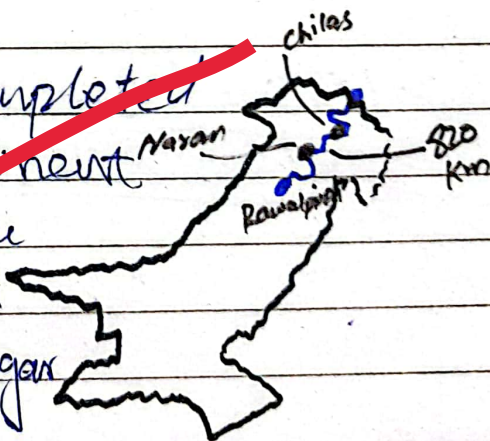 Chilas
mpleted
Naran
820
Km
ment
Rawalpindi
gar